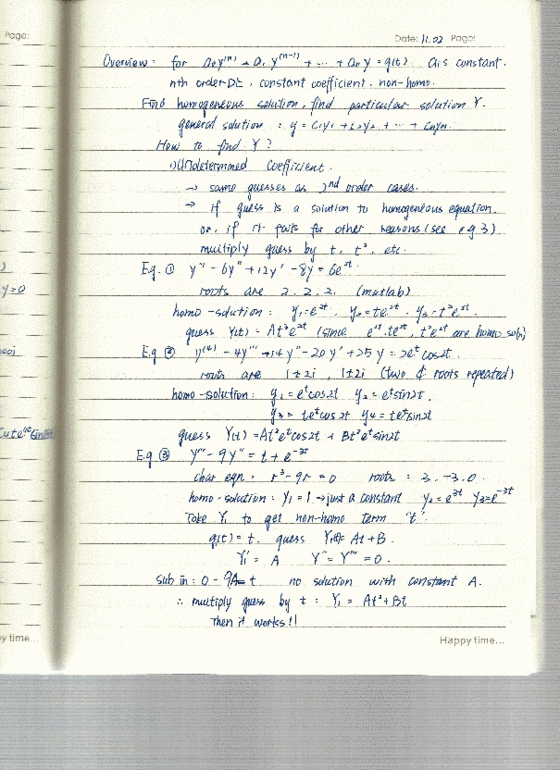 Page:
Date: 11.02 Page:
Overview: for a₀y⁽ⁿ⁾ + a₁ y⁽ⁿ⁻¹⁾ + ... + aₙ y = g(t) aᵢs constant.
nth order DE, constant coefficient, non-homo.
Find homogeneous solution, find particular solution Y.
general solution : y = c₁y₁ + c₂y₂ + ... + cₙyₙ.
How to find Y?
1) Undetermined Coefficient.
→ same guesses as 2nd order cases.
→ if guess is a solution to homogeneous equation.
or, if it fails for other reasons (see eg 3)
multiply guess by t, t², etc.
E.g. ① y''' - 6y'' + 12y' - 8y = 6e²ᵗ
y=0
roots are 2, 2, 2. (matlab)
homo-solution: y₁=e²ᵗ, y₂=te²ᵗ, y₃=t²e²ᵗ.
guess Y(t) = At³e²ᵗ (since e²ᵗ, te²ᵗ, t²e²ᵗ are homo soln)
E.g ② y⁽⁴⁾ - 4y''' + 14y'' - 20y' + 25y = 2eᵗcos2t.
roots are 1±2i, 1±2i (two ₵ roots repeated)
homo-solution: y₁ = eᵗcos2t y₂ = eᵗsin2t.
y₃ = teᵗcos2t y₄ = teᵗsin2t
guess Y(t) = At²eᵗcos2t + Bt²eᵗsin2t
E.g ③ y''' - 9y' = t + e⁻³ᵗ
char eqn. : r³ - 9r = 0 roots : 3, -3, 0.
homo-solution : y₁ = 1 → just a constant y₂ = e³ᵗ y₃ = e⁻³ᵗ
Take Y₁ to get non-homo term "t".
g₁(t) = t, guess Y₁(t) = At + B.
Y₁' = A Y'' = Y''' = 0.
Sub in : 0 - 9A = t no solution with constant A.
∴ multiply guess by t : Y₁ = At² + Bt
Then it works!!
y time...
Happy time...